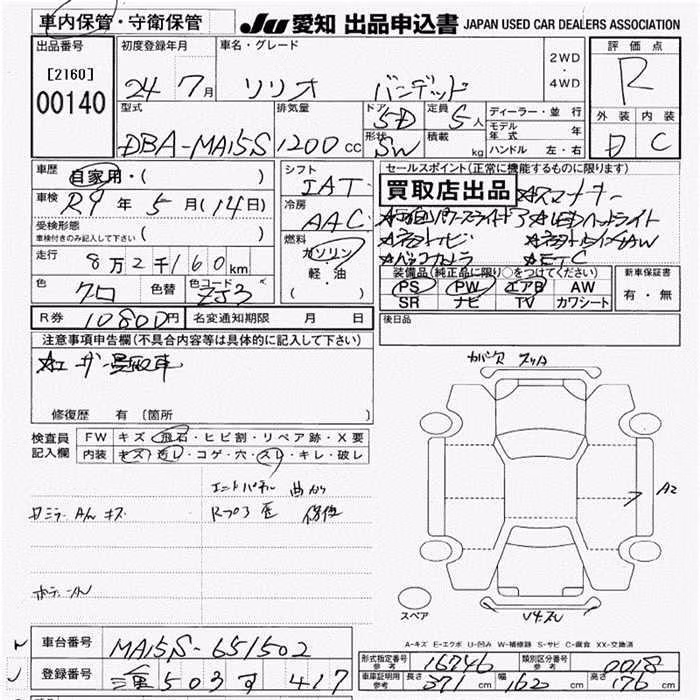 車内保管・守衛保管
JU 愛知 出品申込書 JAPAN USED CAR DEALERS ASSOCIATION
出品番号
[2160]
00140
初度登録年月
24 7月
車名・グレード
ソリオ バンデッド
2WD
・
4WD
評価点
R
外装 内装
C
型式
DBA-MA15S
排気量
1200 cc
ドア
5D
形状
SW
定員
5人
積載
kg
ディーラー・並行
モデル年式 年
ハンドル 左・右
車歴
自家用・( )
車検
R9年5月(14日)
受検形態
車検付きのみ記入して下さい ( )
走行
8万2千160km
色
クロ
色替
色コード
ZJ3
シフト
IAT
冷房
AAC
燃料
ガソリン
・
軽・油
( )
セールスポイント(正常に機能するものに限ります)
買取店出品
☆スマートキー
☆両側パワースライドドア ☆LEDヘッドライト
☆ETC
装備品(純正品に限り○をつけてください)
PS PW エアB AW
SR ナビ TV カワシート
新車保証書
有・無
R券 10800円
名変通知期限 月 日
後日品
注意事項申告欄(不具合内容等は具体的に記入して下さい)
☆ユーザー買取車
修復歴 有 (箇所 )
検査員
記入欄
FW キズ・飛石・ヒビ割・リペア跡・X要
内装 キズ・汚レ・コゲ・穴・スレ・キレ・破レ
エンドパネル 曲がり
カバー欠
A2
スペア
A-キズ E-エクボ U-凹み W-補修跡 S-サビ C-腐食 XX-交換済
車台番号 MA15S-651502
登録番号 503 す 417
形式指定番号
参考
16746
類別区分番号
参考
0018
車庫証明用
参考
長さ 371 cm 幅 162 cm 高さ 176 cm